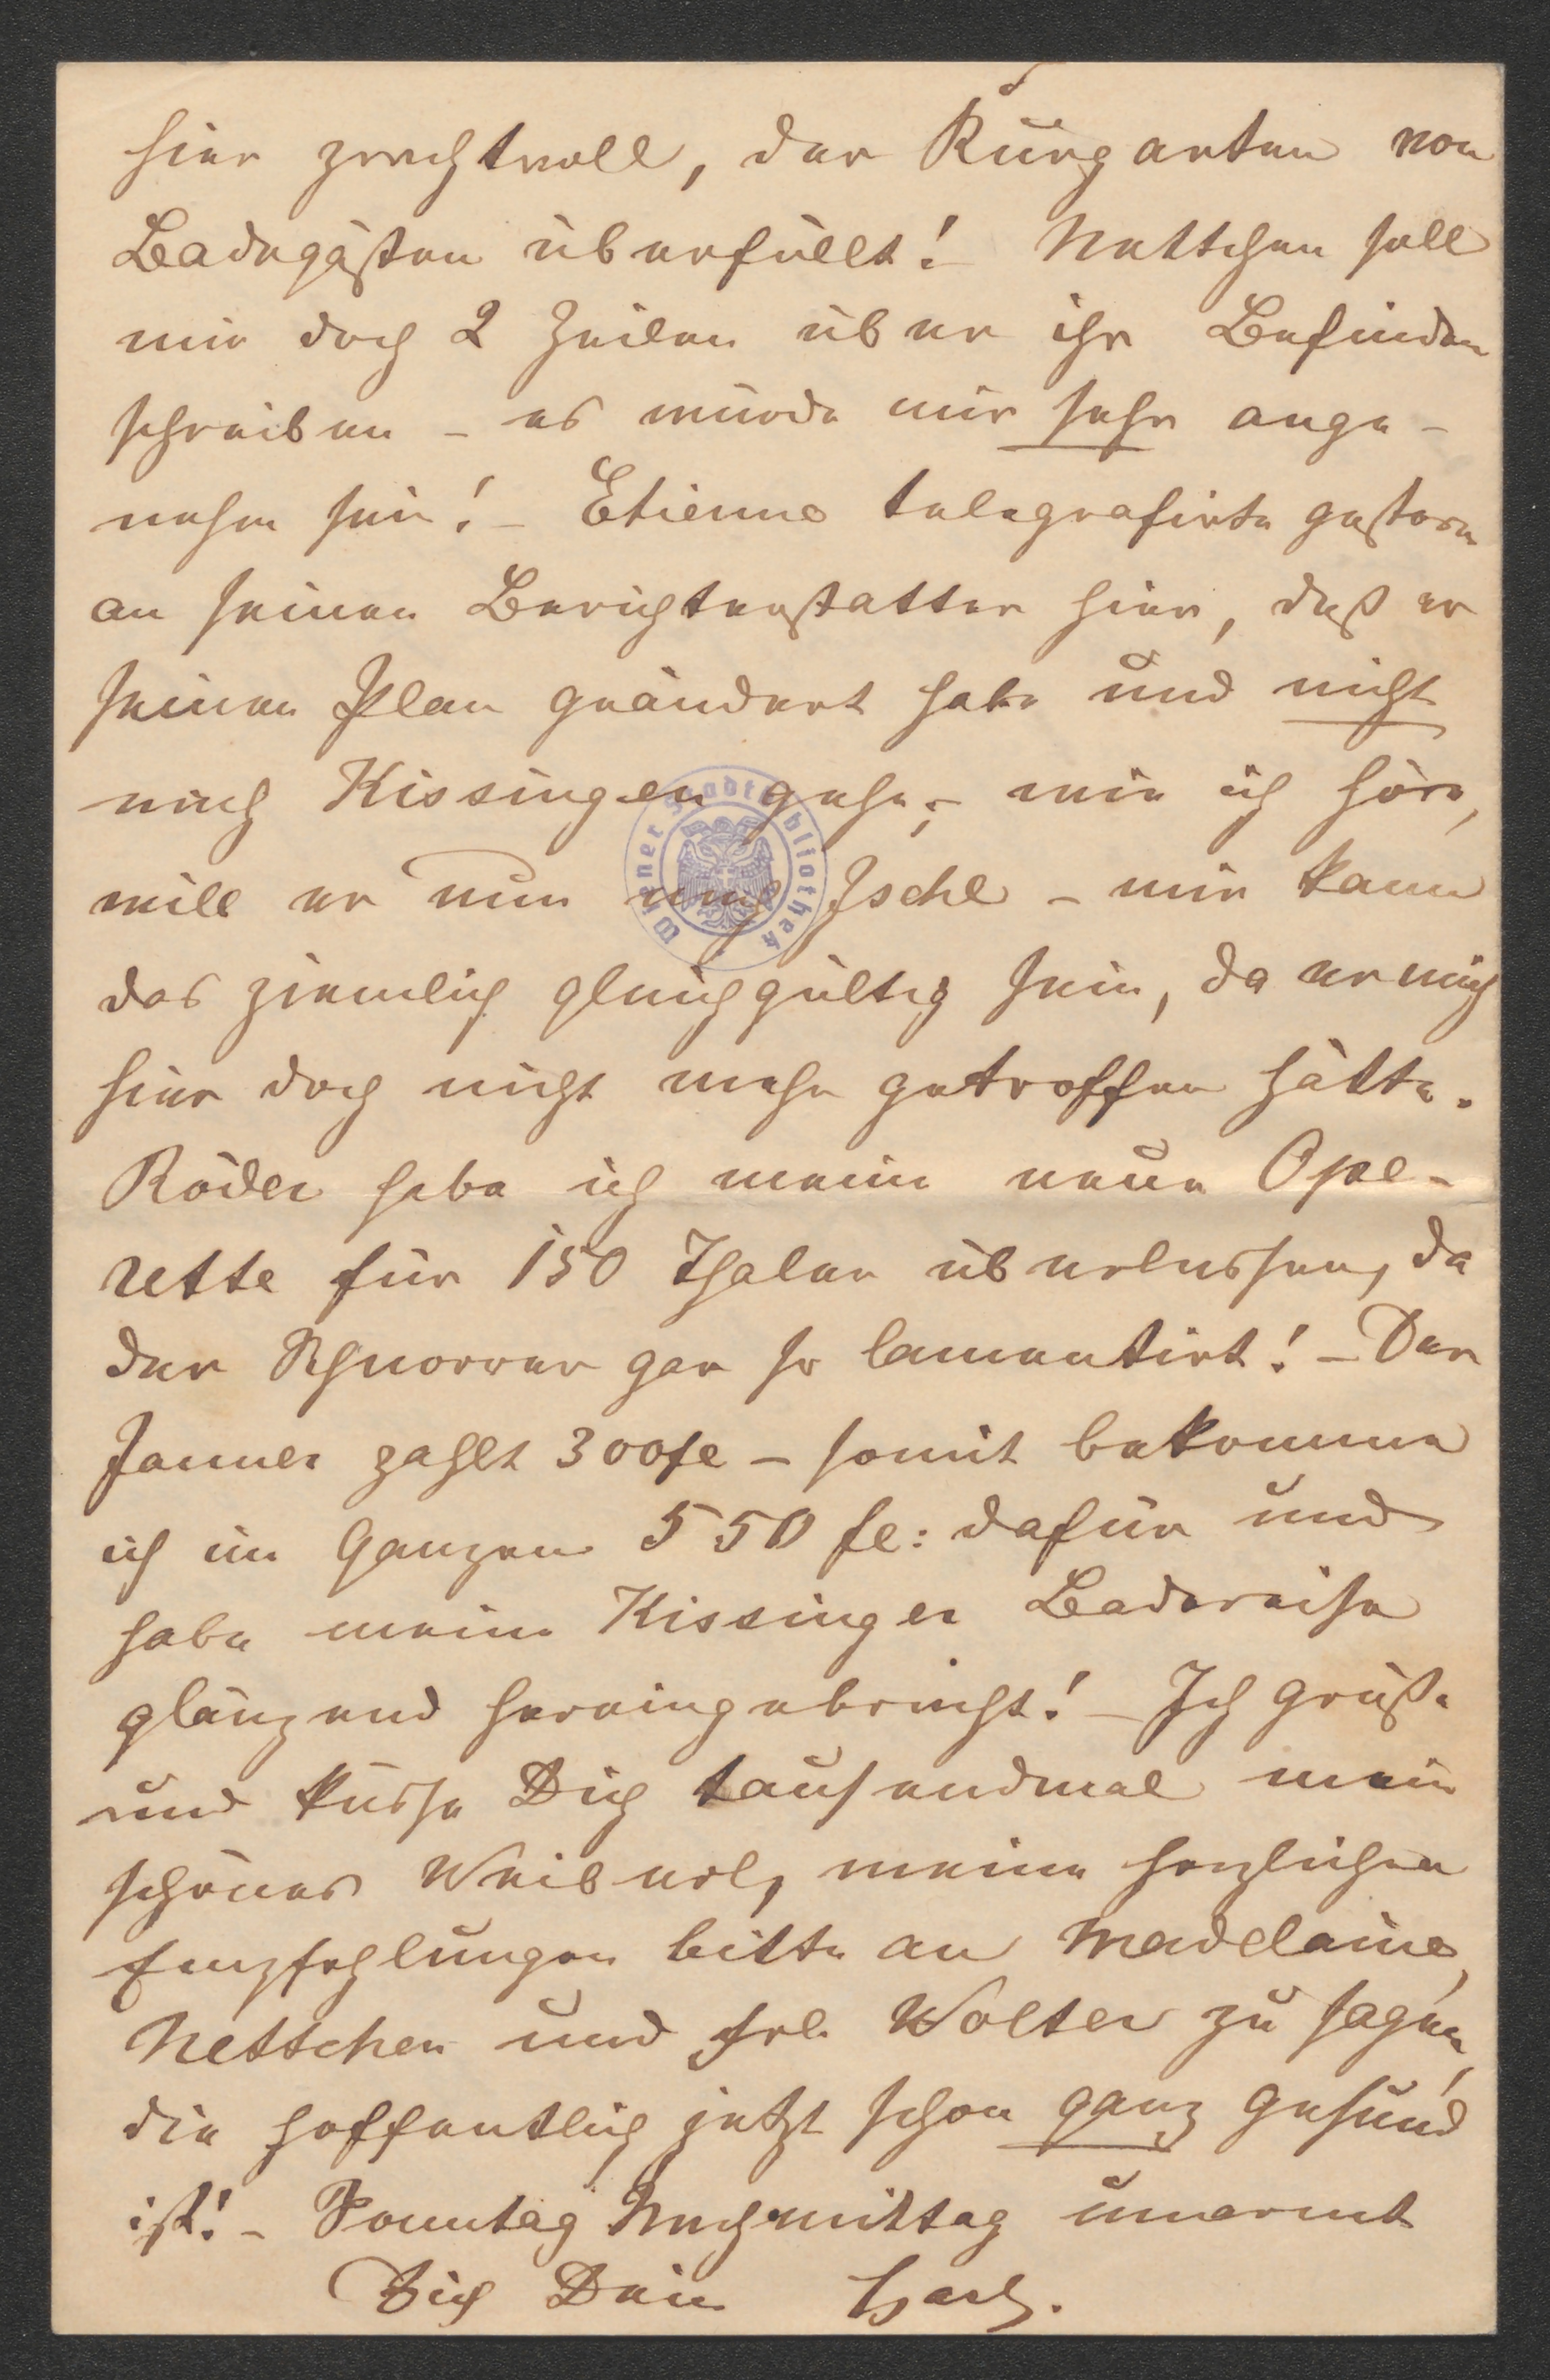 hier prachtvoll, der Kurgarten von
Badegästen überfüllt! – Nettchen soll
mir doch 2 Zeilen über ihr Befinden
schreiben – es würde mir sehr ange-
nehm sein! – Etienne telegrafirte gestern
an seinen Berichterstatter hier, daß er
seinen Plan geändert habe und nicht
nach Kissingen gehe; – wie ich höre,
will er nun nach Ischl – mir kann
das ziemlich gleichgültig sein, da er mich
hier doch nicht mehr getroffen hätte.
Röder habe ich meine neue Ope-
rette für 150 Thaler überlassen, da
der Schnorrer gar so lamentirt! – Der
Jauner zahlt 300 fl – somit bekomme
ich im Ganzen 550 fl: dafür und
habe meine Kissinger Badereise
glänzend hereingebracht! – Ich grüße
und küsse Dich tausendmal mein
schönes Weiberl, meine herzlichen
Empfehlungen bitte an Madelaine,
Nettchen und Frl. Wolter zu sagen,
die hoffentlich jetzt schon ganz gesund
ist! – Sonntag Nachmittag umarmt
Dich Dein
Wiener Stadtbibliothek